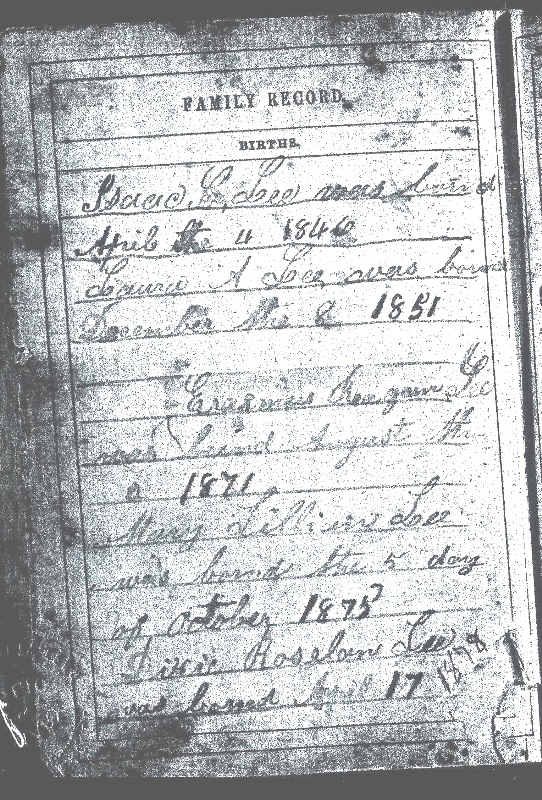 FAMILY RECORD.
BIRTHS.
Isaac. C. Lee was bornd
April the 4 1846
Laura A Lee was born
December the 8 1851
Erasmus Lee
was bornd August the
1871
Mary Lillian Lee
was bornd the 5 day
of October 1875
Roselan Lee
was bornd April 17 1878